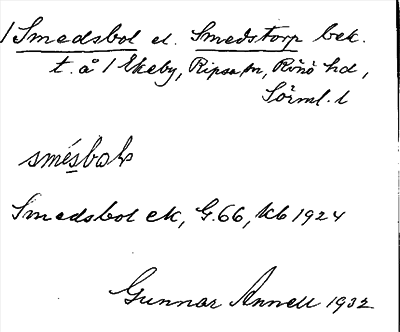 1 Smedsbol el. Smedstorp bek.
t. å 1 Ekeby, Ripsa sn, Rönö hd,
Sörml. l
smésbolͅ
Smedsbol ek, G. 66, kb 1924
Gunnar Annell 1932